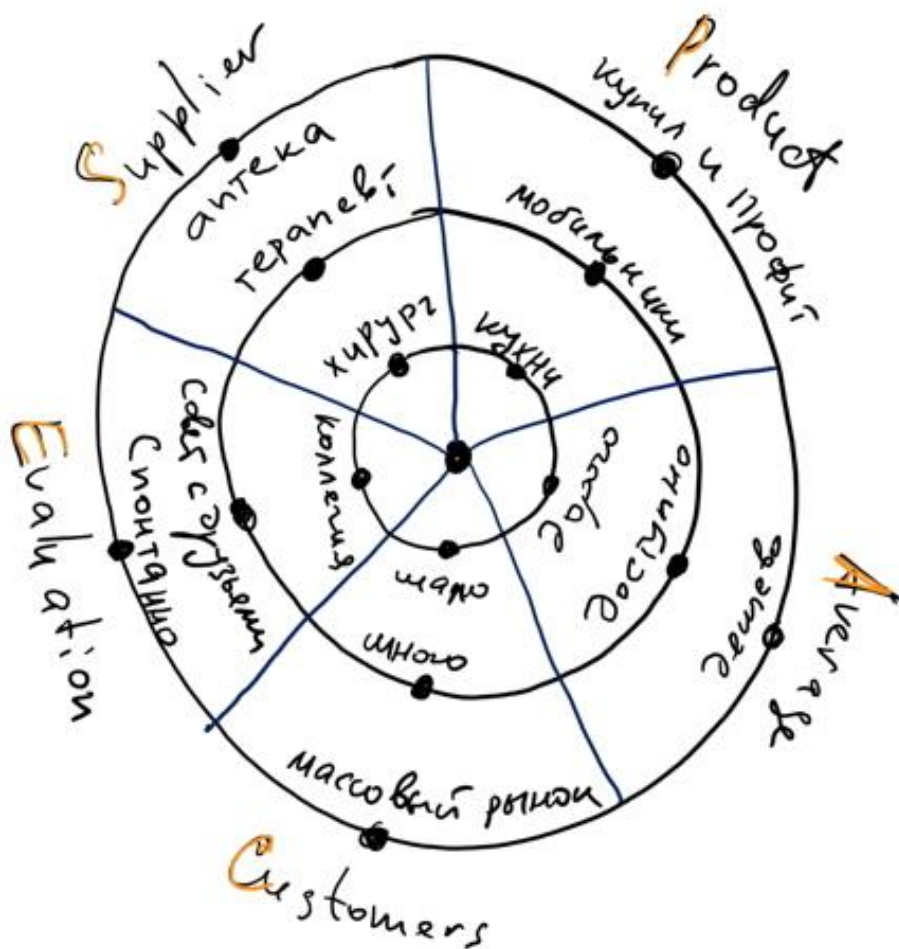 Supplier
аптека
терапевт
хирург
Product
купил и профит
мобильники
кухни
Average
дешево
доступно
дорого
Customers
массовый рынок
много
мало
Evaluation
Спонтанно
совет с друзьями
коллегия